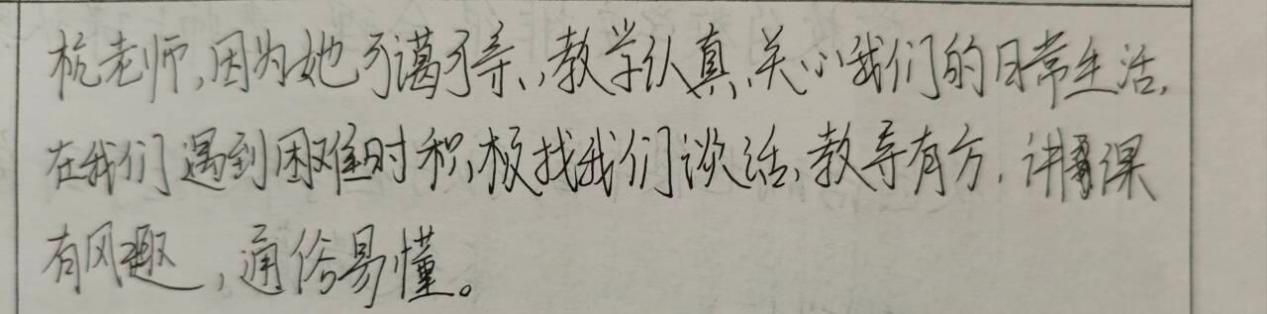 杭老师,因为她可蔼可亲、教学认真、关心我们的日常生活,
在我们遇到困难时积极找我们谈话、教导有方,讲课
有风趣,通俗易懂。